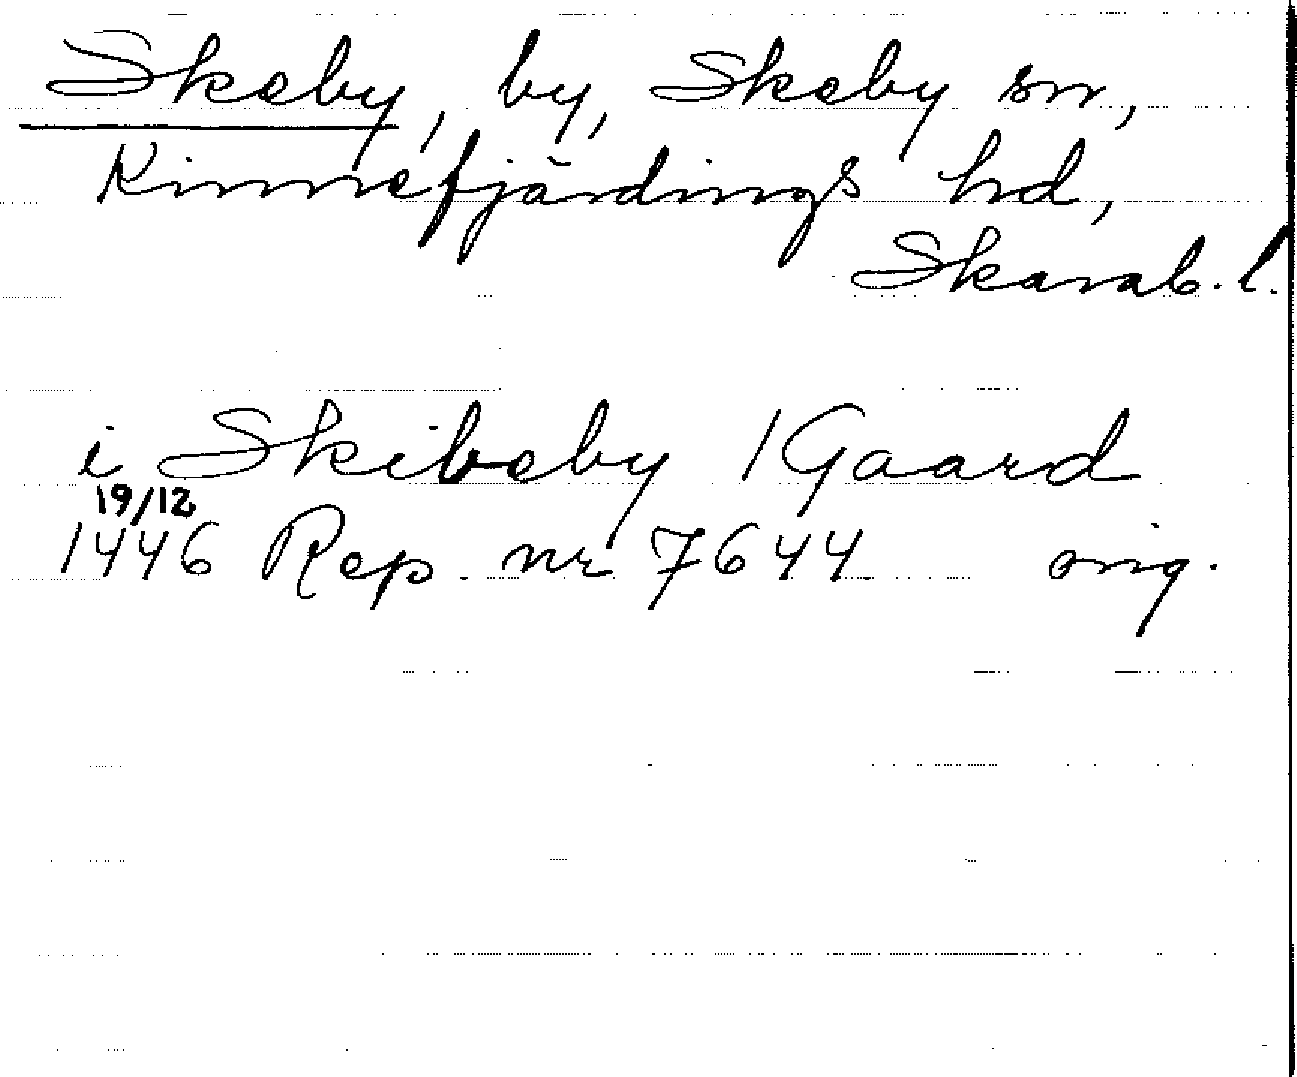 Skeby, by, Skeby sn,
Kinnefjärdings hd,
Skarab. l.
i Skibeby 1 Gaard
19/12
1446 Rep. nr 7644 orig.